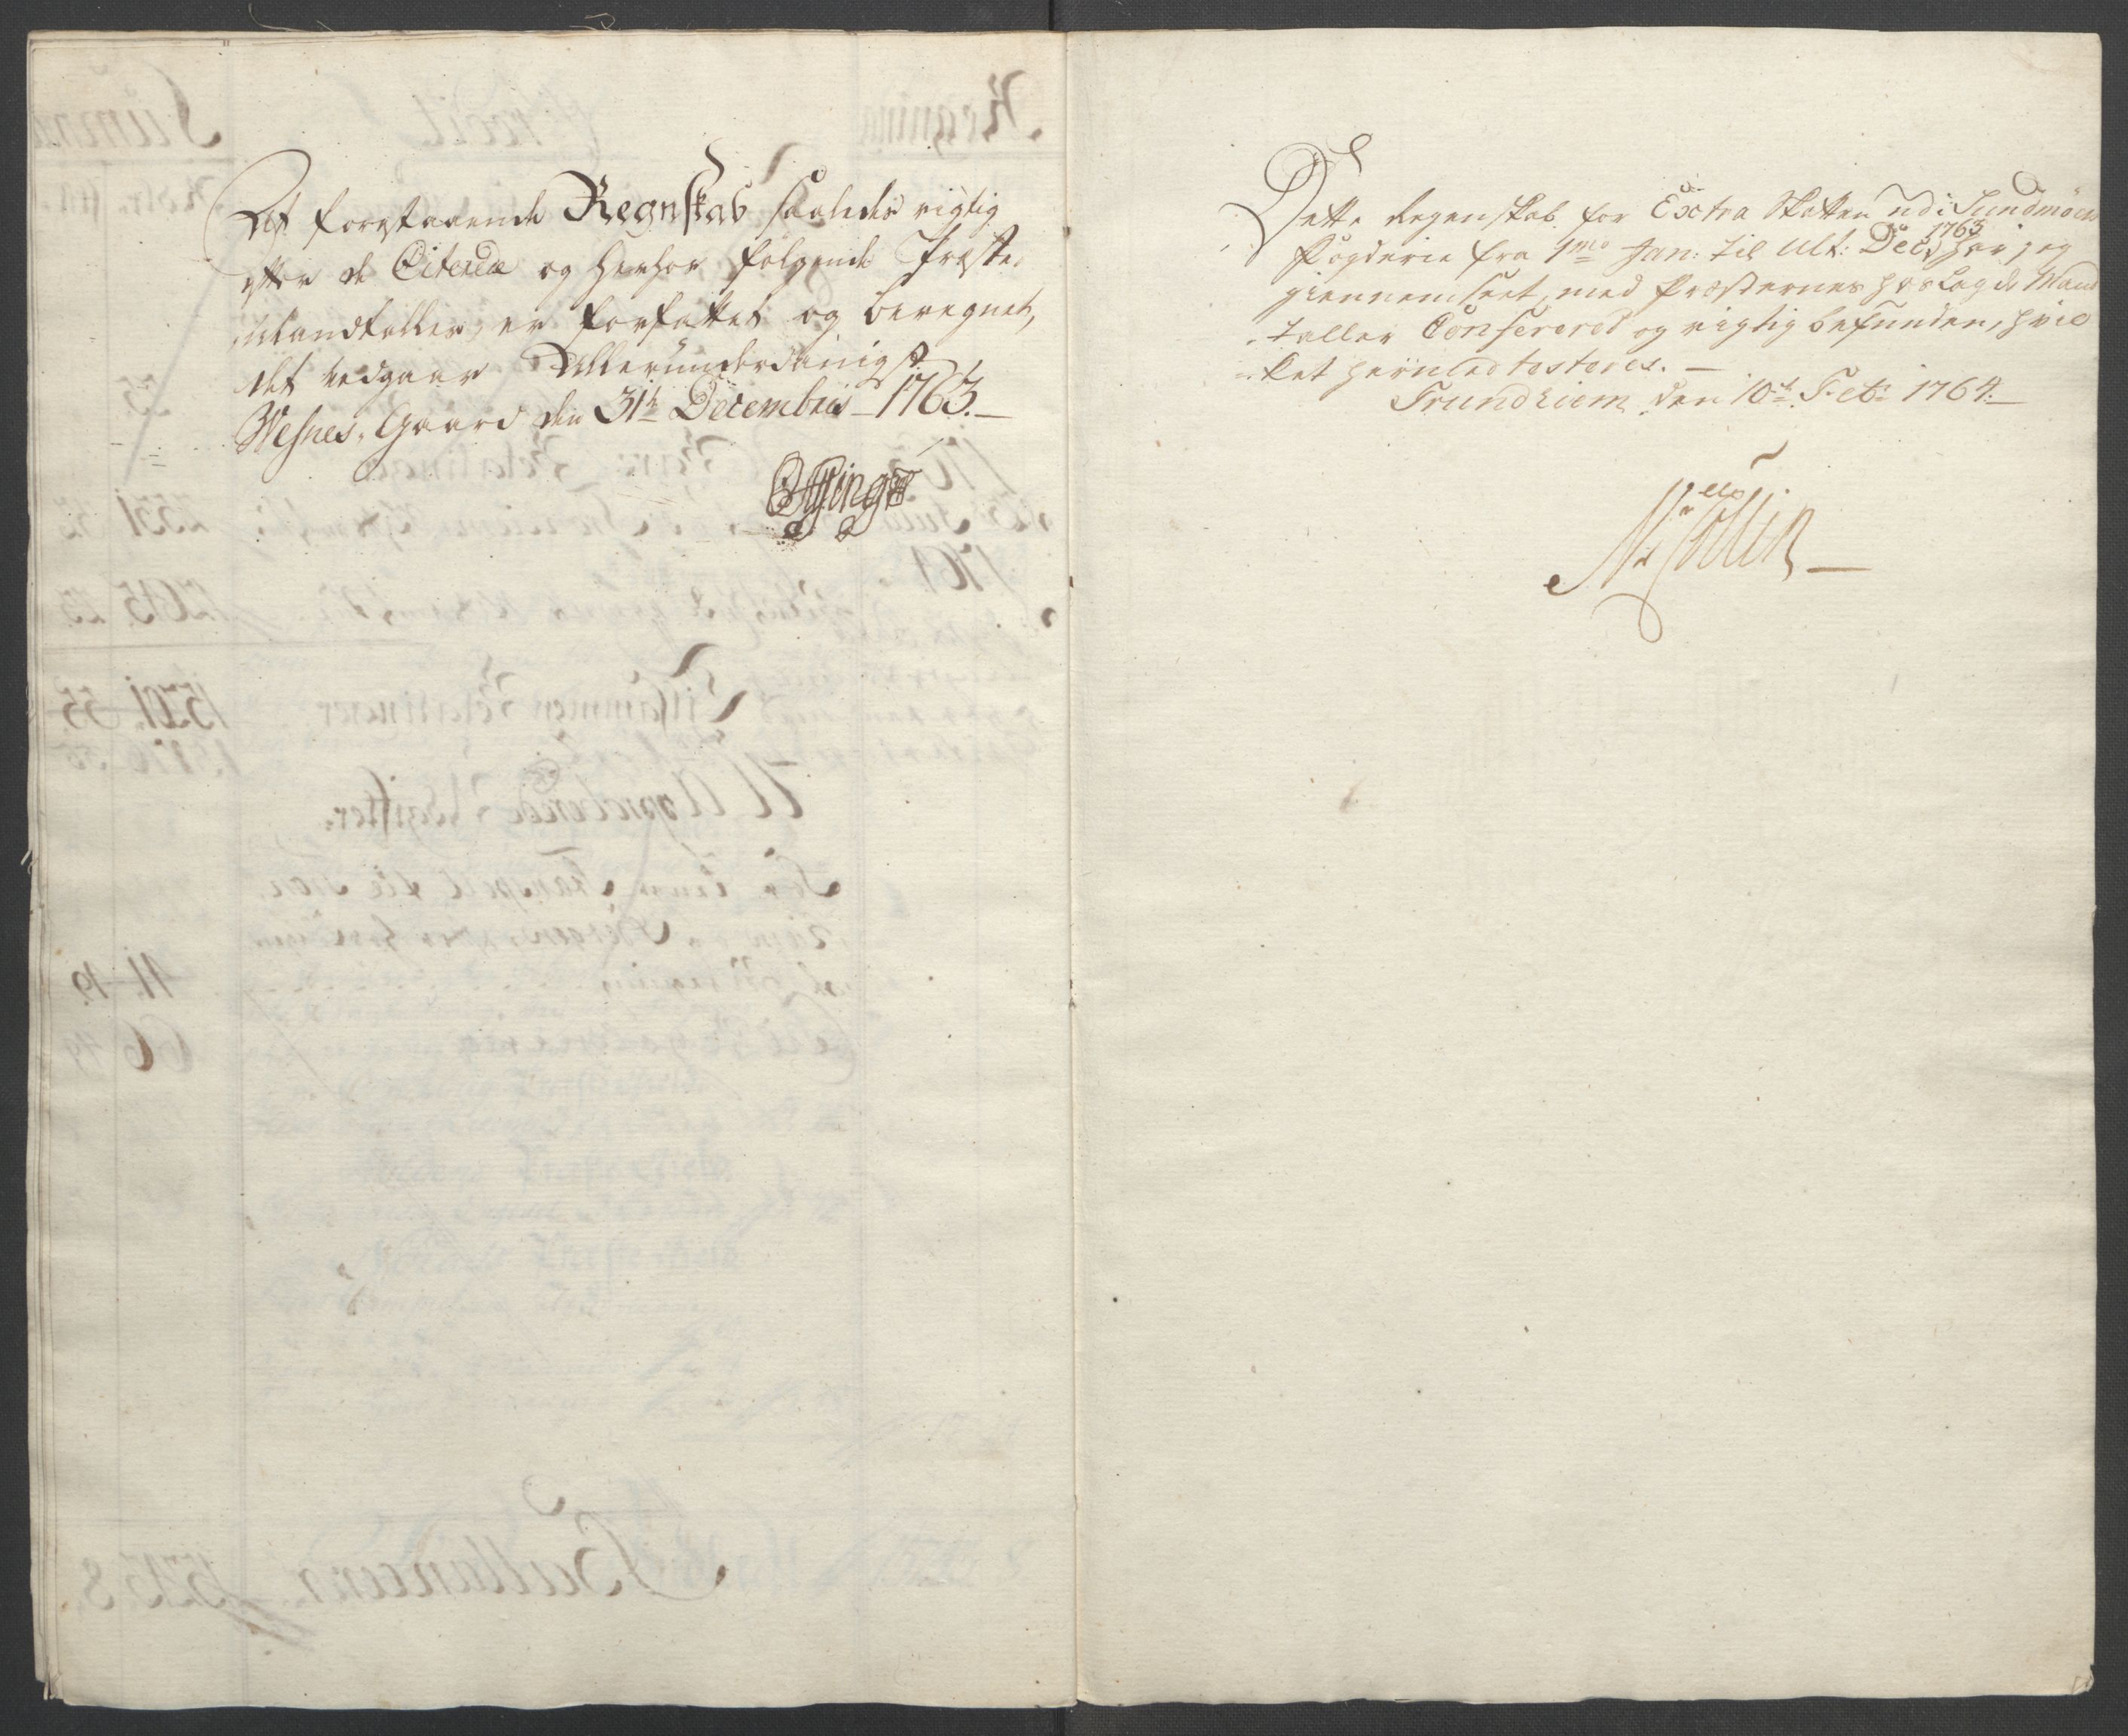 At forestaaende Regnskab saaledes rigtig
efter de Citerede og herhos følgende Præste-
Mandtaller, er forfattet og beregnet,
det vedgaar Allerunderdanigst.
Wesnes-Gaard den 31te Decembris 1763.
Dette Regenskab for Extra Skatten udi Sundmøers
Fogderie fra 1mo Jan: til Ult: Decbr 1763 har jeg
giennemseet, med Præsternes hoslagde Mand
-taller Confereret og rigtig befunden, hvil
-ket herved testeres.
Trundhiem den 10de Feb: 1764.
N: Collin